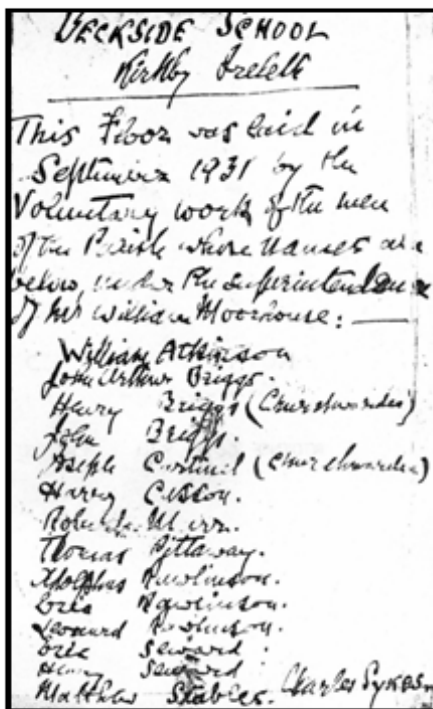 BECKSIDE SCHOOL
Kirkby Ireleth
This Floor was laid in
September 1931 by the
Voluntary work of the men
of the Parish whose names are
below, under the Superintendence
of Mr William Moorhouse: —
William Atkinson
John Arthur Briggs.
Henry Briggs (Churchwarden)
John Briggs.
Joseph (Churchwarden)
Harry Casson.
Thomas Pittaway.
Adolphus Rawlinson.
Rawlinson.
Leonard Rawlinson.
Seward
Henry Seward
Matthew Stables. Charles Sykes